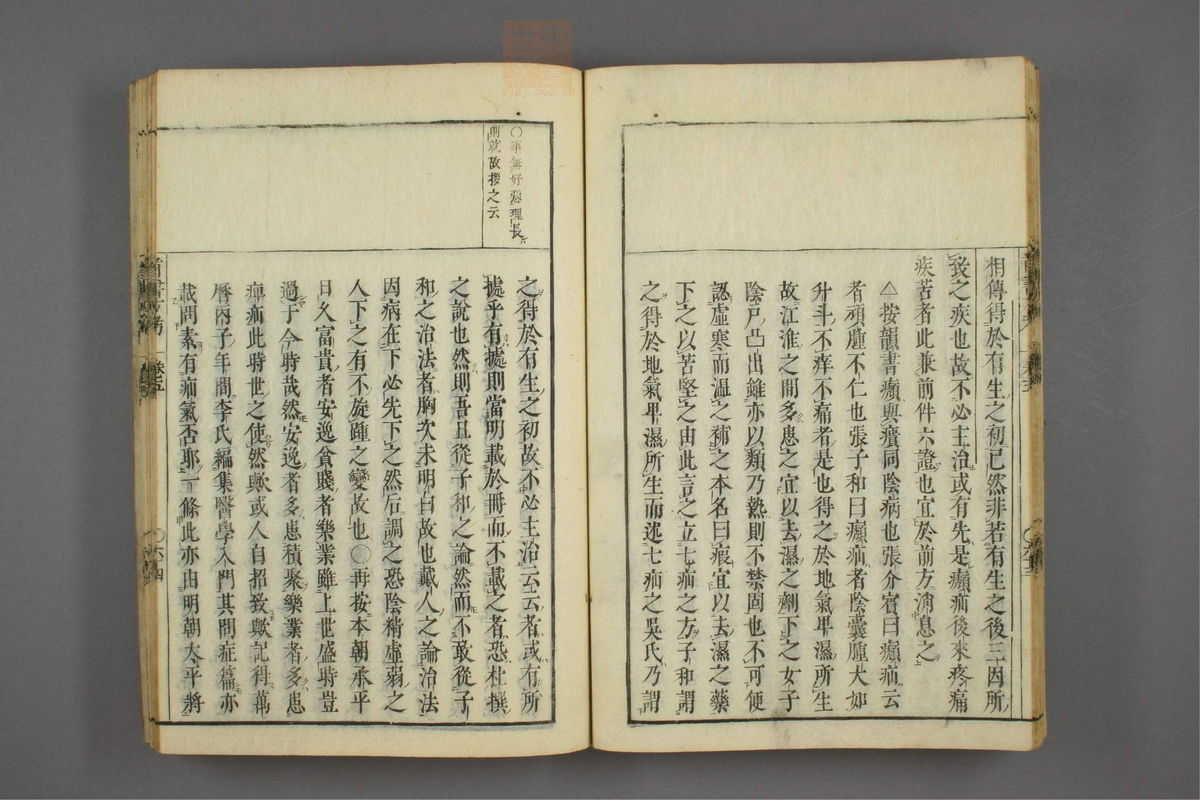 相傳得於有生之初已然非若有生之後三因所
致之疾也故不必主治或有先是癲疝後來疼痛
疾苦者此兼前件六證也宜於前方消息之
△按韻書癲與㿉同陰病也張介賓曰癲疝云
者頑腫不仁也張子和曰癲疝者陰囊腫大如
升斗不痒不痛者是也得之於地氣卑濕所生
故江淮之間多患之宜以去濕之劑下之女子
陰戶凸出雖亦以類乃熱則不禁固也不可便
認虛寒而溫之補之本名曰瘕宜以去濕之藥
下之以苦堅之由此言之立七疝之方子和謂
之得於地氣卑濕所生而述七疝之吳氏乃謂
○事無好惡理長
則就故拶之云
之得於有生之初故不必主治云云者或有所
據乎有據則當明載於冊而不載之者恐杜撰
之說也然則吾且從子和之論然而不敢從子
和之治法者胸次未明白故也戴人之論治法
因病在下必先下之然后調之恐陰精虛弱之
人下之有不旋踵之變故也○再按本朝承平
日久富貴者安逸貧賤者樂業雖上世盛時豈
過于今時哉然安逸者多患積聚樂業者多患
疝此時世之使然歟或人自招致歟記得萬
曆丙子年間李氏編集醫學入門其問症篇亦
載問素有疝氣否耶一條此亦由明朝太平將
卷五
○六十四